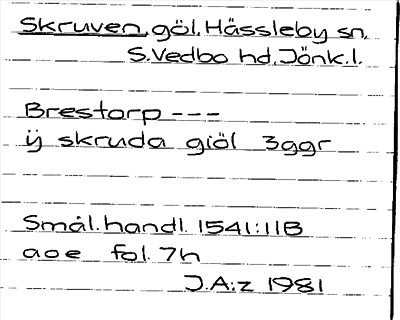 Skruven, göl. Hässleby sn.
S.Vedbo hd. Jönk.l.
Brestorp ---
ÿ skruda giöl 3ggr
Smål.handl. 1541:11B
aoe fol. 7h
J.A:z 1981